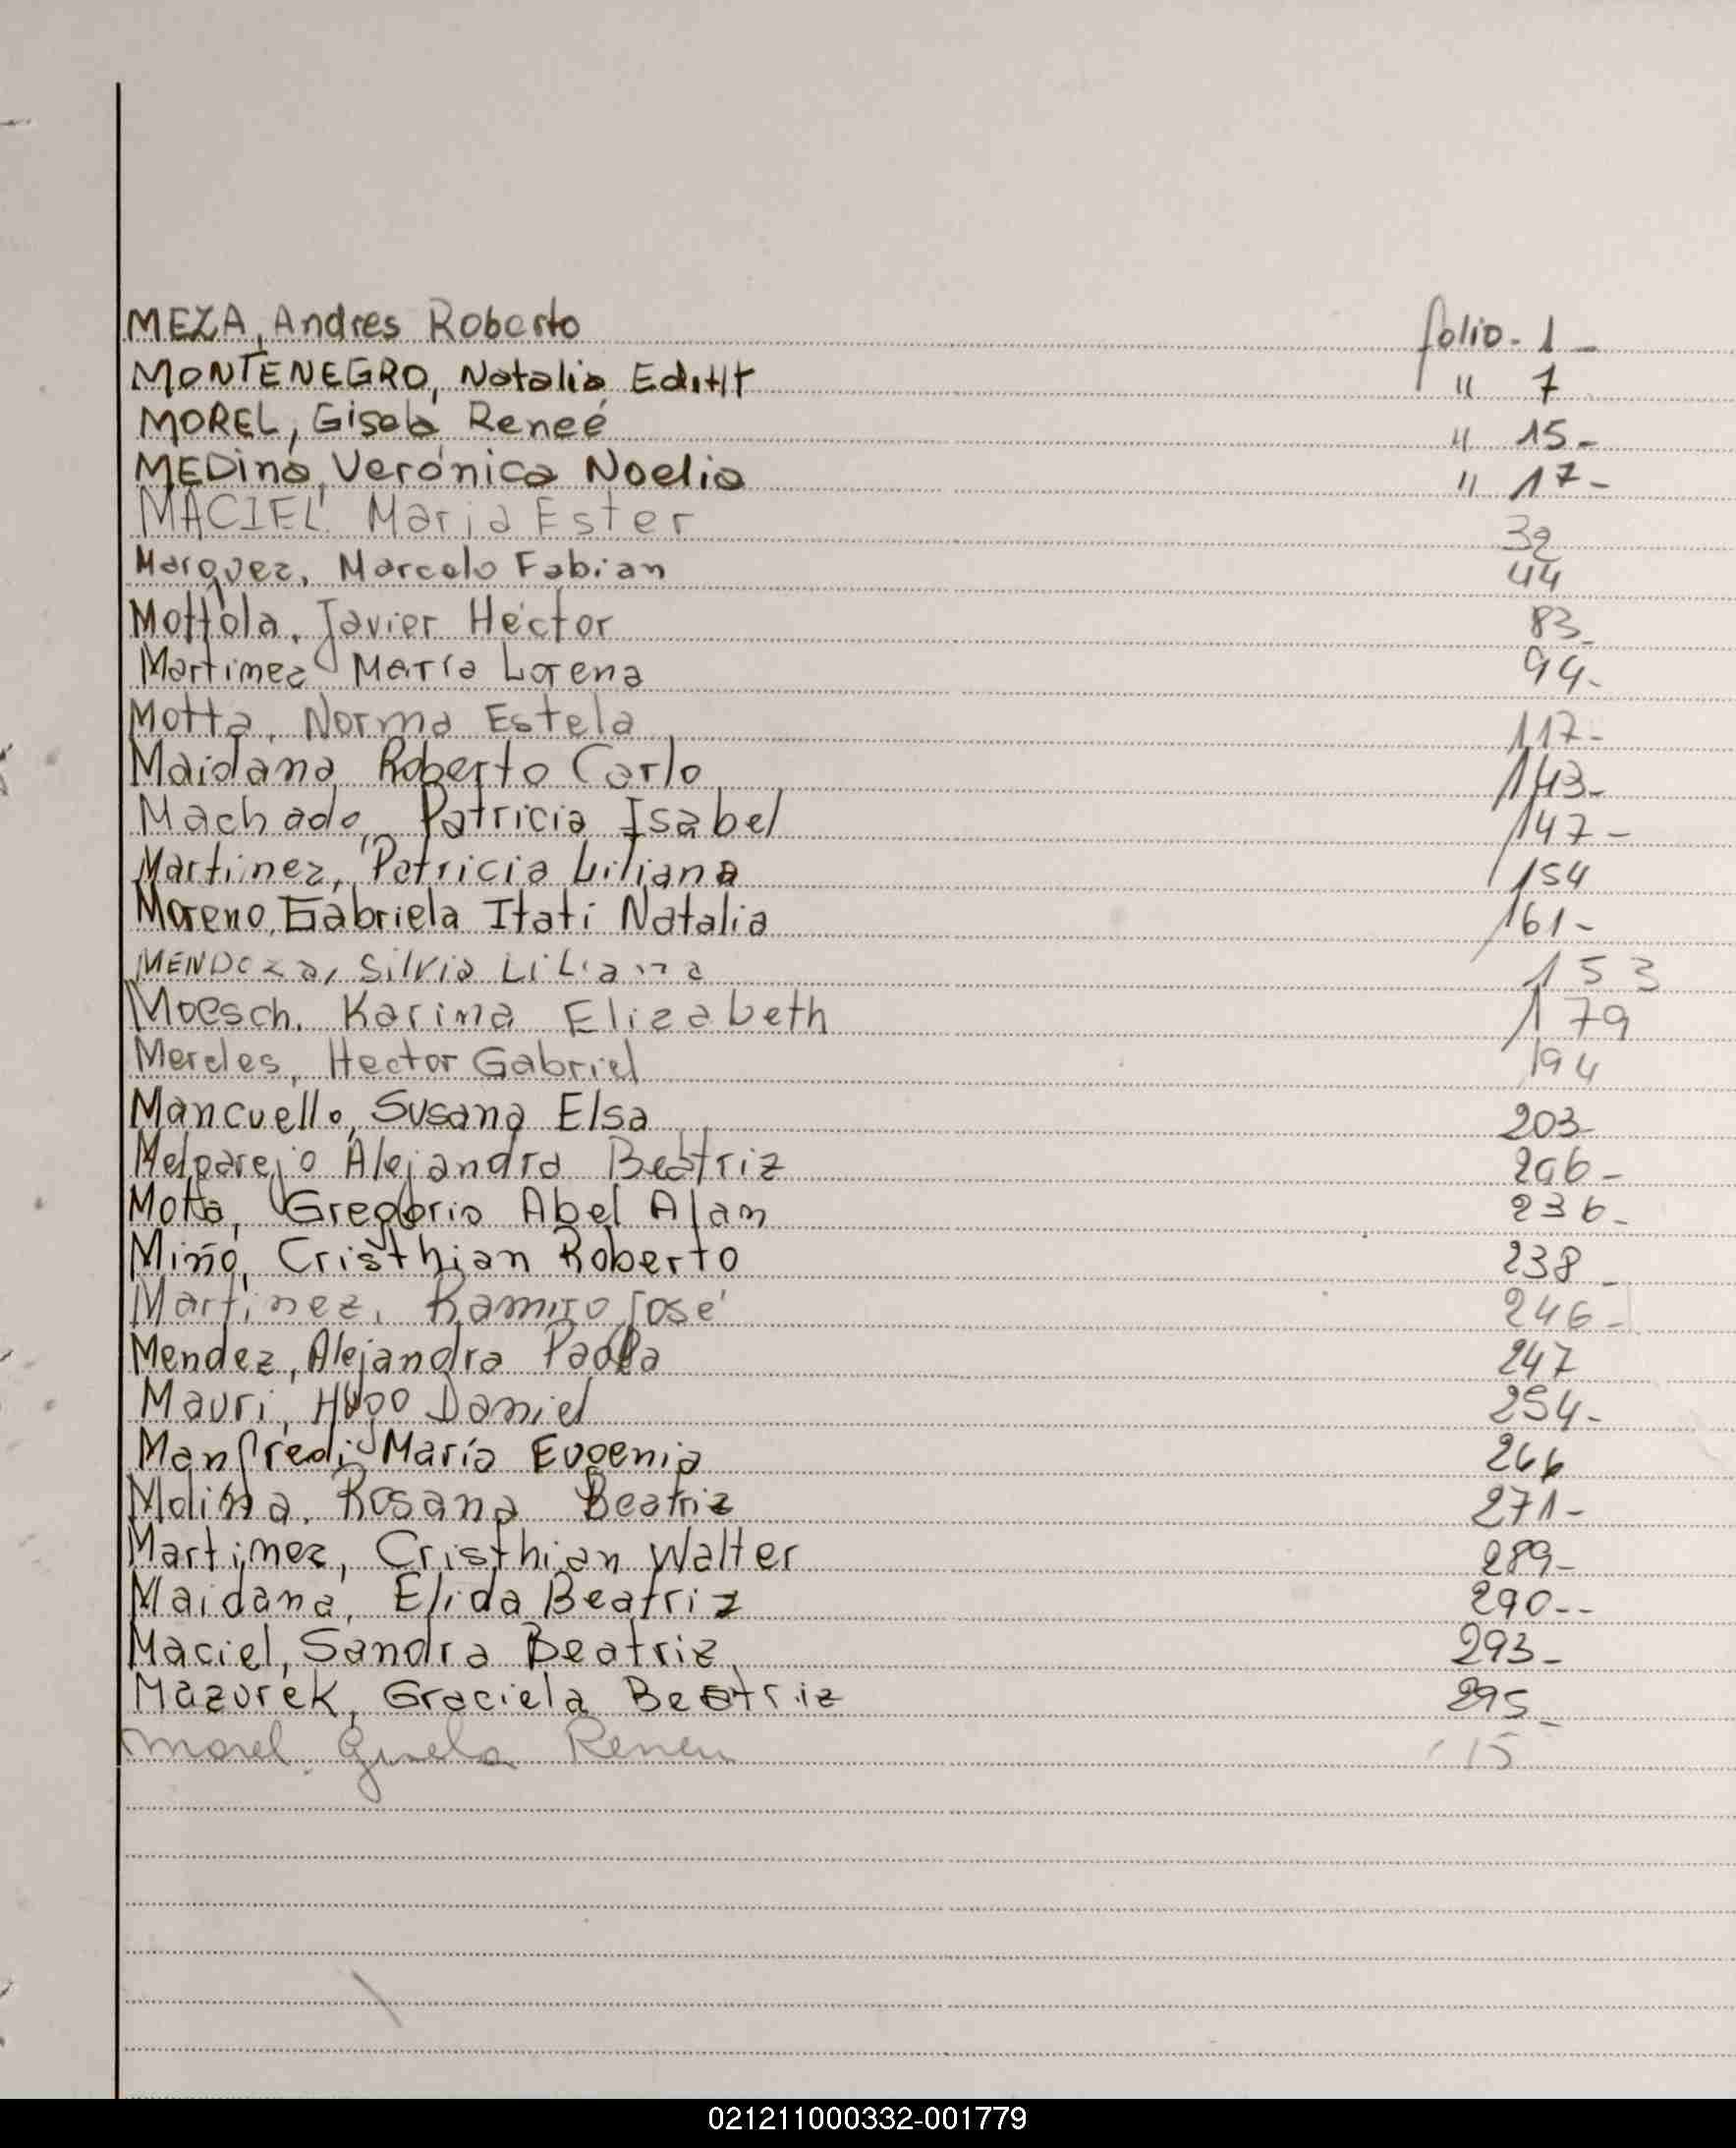 MEZA, Andres Roberto folio - 1 -
MONTENEGRO, Natalia Edith " 7
MOREL, Gisela Reneé " 15 -
MEDina, Verónica Noelia " 17 -
MACIEL María Ester 32
Marquez, Marcelo Fabian 44
Mottola, Javier Héctor 83 -
Martinez María Lorena 94 -
Motta, Norma Estela 117 -
Maidana, Roberto Carlo 143 -
Machado, Patricia Isabel 147 -
Martinez, Patricia Liliana 154
Moreno, Gabriela Itatí Natalia 161 -
MENDOZA, Silvia Liliana 153
Moesch, Karina Elizabeth 179
Mereles, Hector Gabriel 194
Mancuello, Susana Elsa 203
Melgarejo Alejandra Beatriz 206 -
Motta, Gregorio Abel Alan 236 -
Miño, Cristhian Roberto 238 -
Martinez, Ramiro José 246 -
Mendez, Alejandra Paola 247
Mauri, Hugo Daniel 254 -
Manfredi María Eugenia 266
Molina, Rosana Beatriz 271 -
Martinez, Cristhian Walter 289 -
Maidana, Elida Beatriz 290 --
Maciel, Sandra Beatriz 293 -
Mazurek, Graciela Beatriz 295 -
Morel Gisela 15
021211000332-001779